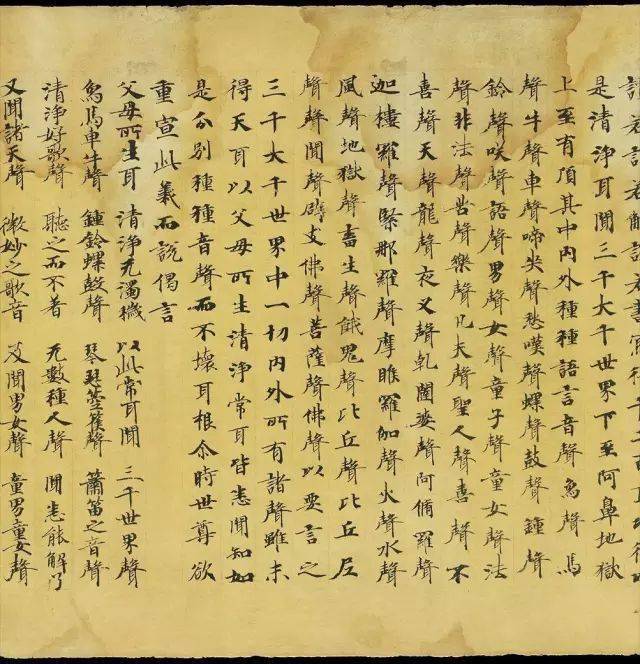 若解說若書寫得千二百
是清淨耳聞三千大千世界下至阿鼻地獄
上至有頂其中內外種種語言音聲象聲馬
聲牛聲車聲啼哭聲愁嘆聲螺聲鼓聲鍾聲
鈴聲咲聲語聲男聲女聲童子聲童女聲法
聲非法聲苦聲樂聲凡夫聲聖人聲喜聲不
喜聲天聲龍聲夜叉聲乹闥婆聲阿脩羅聲
迦樓羅聲緊那羅聲摩睺羅伽聲火聲水聲
風聲地獄聲畜生聲餓鬼聲比丘聲比丘尼
聲聲聞聲辟支佛聲菩薩聲佛聲以要言之
三千大千世界中一切內外所有諸聲雖未
得天耳以父母所生清淨常耳皆悉聞知如
是分別種種音聲而不壞耳根尒時世尊欲
重宣此義而說偈言
父母所生耳 清淨无濁穢 以此常耳聞 三千世界聲
象馬車牛聲 鍾鈴螺鼓聲 琴瑟箜篌聲 簫笛之音聲
清淨好歌聲 聽之而不著 无數種人聲 聞悉能解了
又聞諸天聲 微妙之歌音 及聞男女聲 童男童女聲